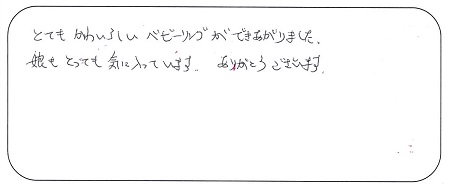 とても かわいらしい ベビーリングが できあがりました。
娘も とっても 気に入っています。 ありがとうございます。